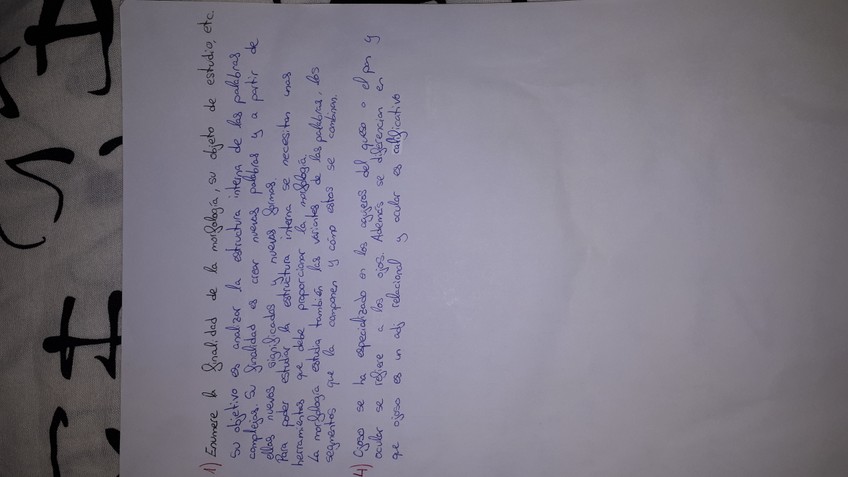 1) Enumere la finalidad de la morfología, su objeto de estudio, etc
Su objetivo es analizar la estructura interna de las palabras
complejas. Su finalidad es crear nuevas palabras y a partir de
ellas nuevos significados y nuevas formas.
Para poder estudiar la estructura interna se necesitan unas
herramientas que debe proporcionar la morfología.
La morfología estudia también las variantes de las palabras, los
segmentos que la componen y cómo estos se combinan.
4) Ojoso se ha especializado en los agujeros del queso o el pan y
ocular se refiere a los ojos. Además se diferencian en
que ojoso es un adj relacional y ocular es calificativo